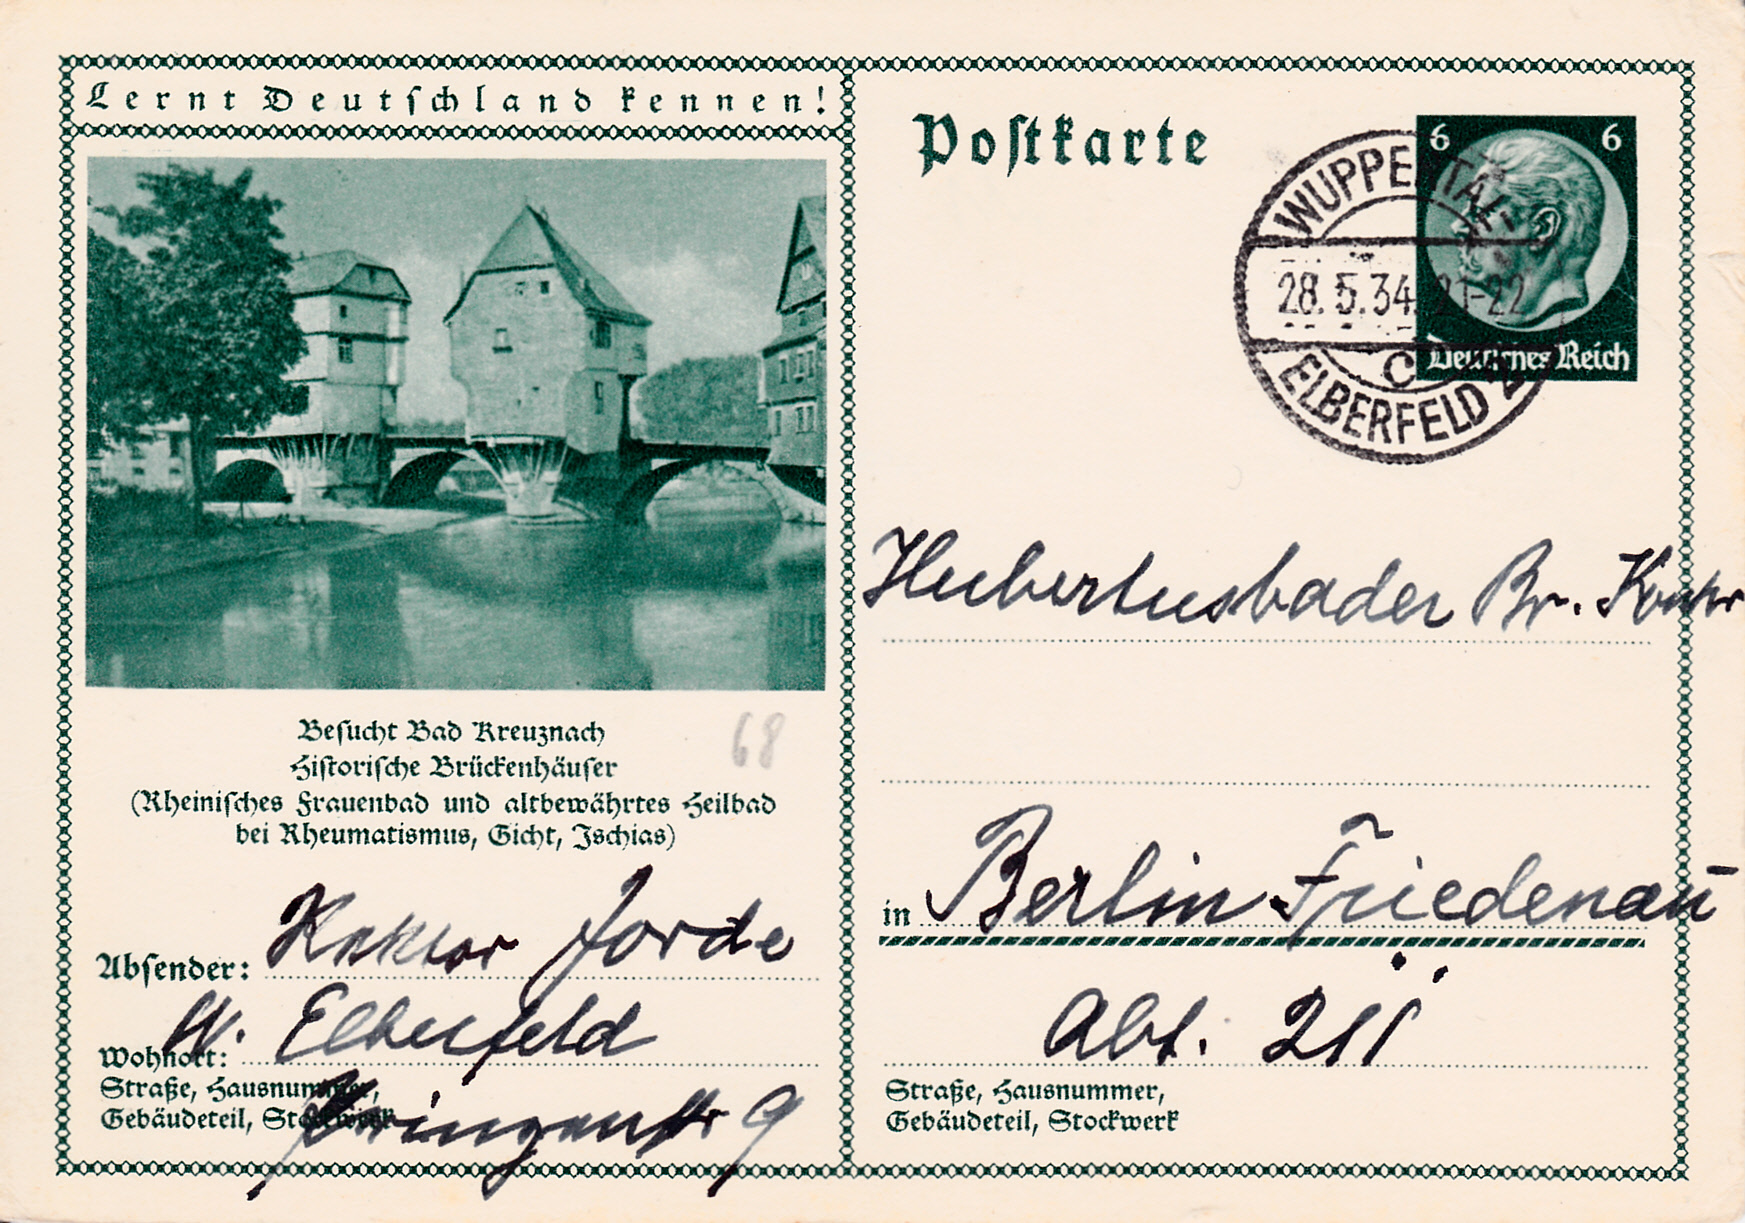 Lernt Deutschland kennen!
Postkarte
6 6
Deutsches Reich
WUPPERTAL-
28.5.34. 21-22
C
ELBERFELD 2
Besucht Bad Kreuznach
Historische Brückenhäuser
(Rheinisches Frauenbad und altbewährtes Heilbad
bei Rheumatismus, Gicht, Ischias)
68
Absender: Jorde
Wohnort: W. Elberfeld
Straße, Hausnummer,
Gebäudeteil, Stockwerk
Prinzenstr 9
Hubertusbader Br.
in Berlin-Friedenau
Abt. 211
Straße, Hausnummer,
Gebäudeteil, Stockwerk